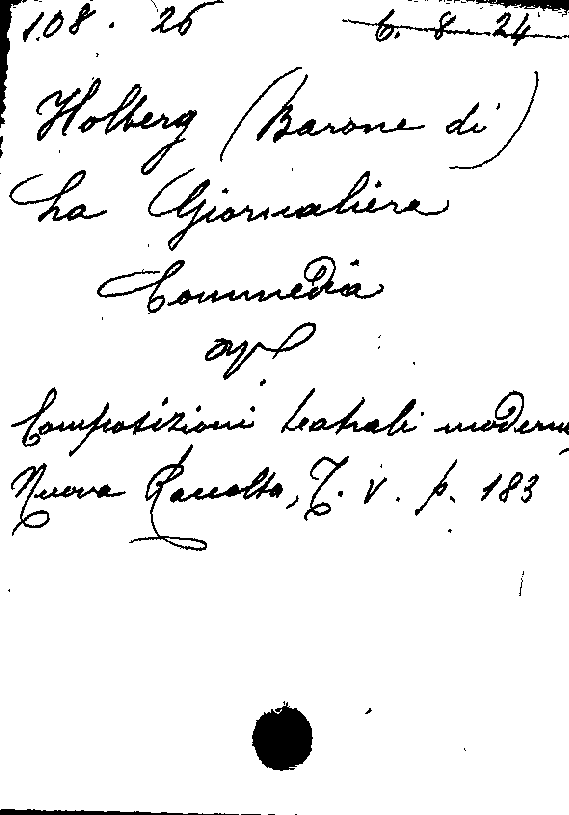 108. 26 6. 8. 24
Holberg (Barone di)
La Giornaliera
Commedia
in
Composizioni teatrali moderne
Nuova Raccolta, T. V. p. 183